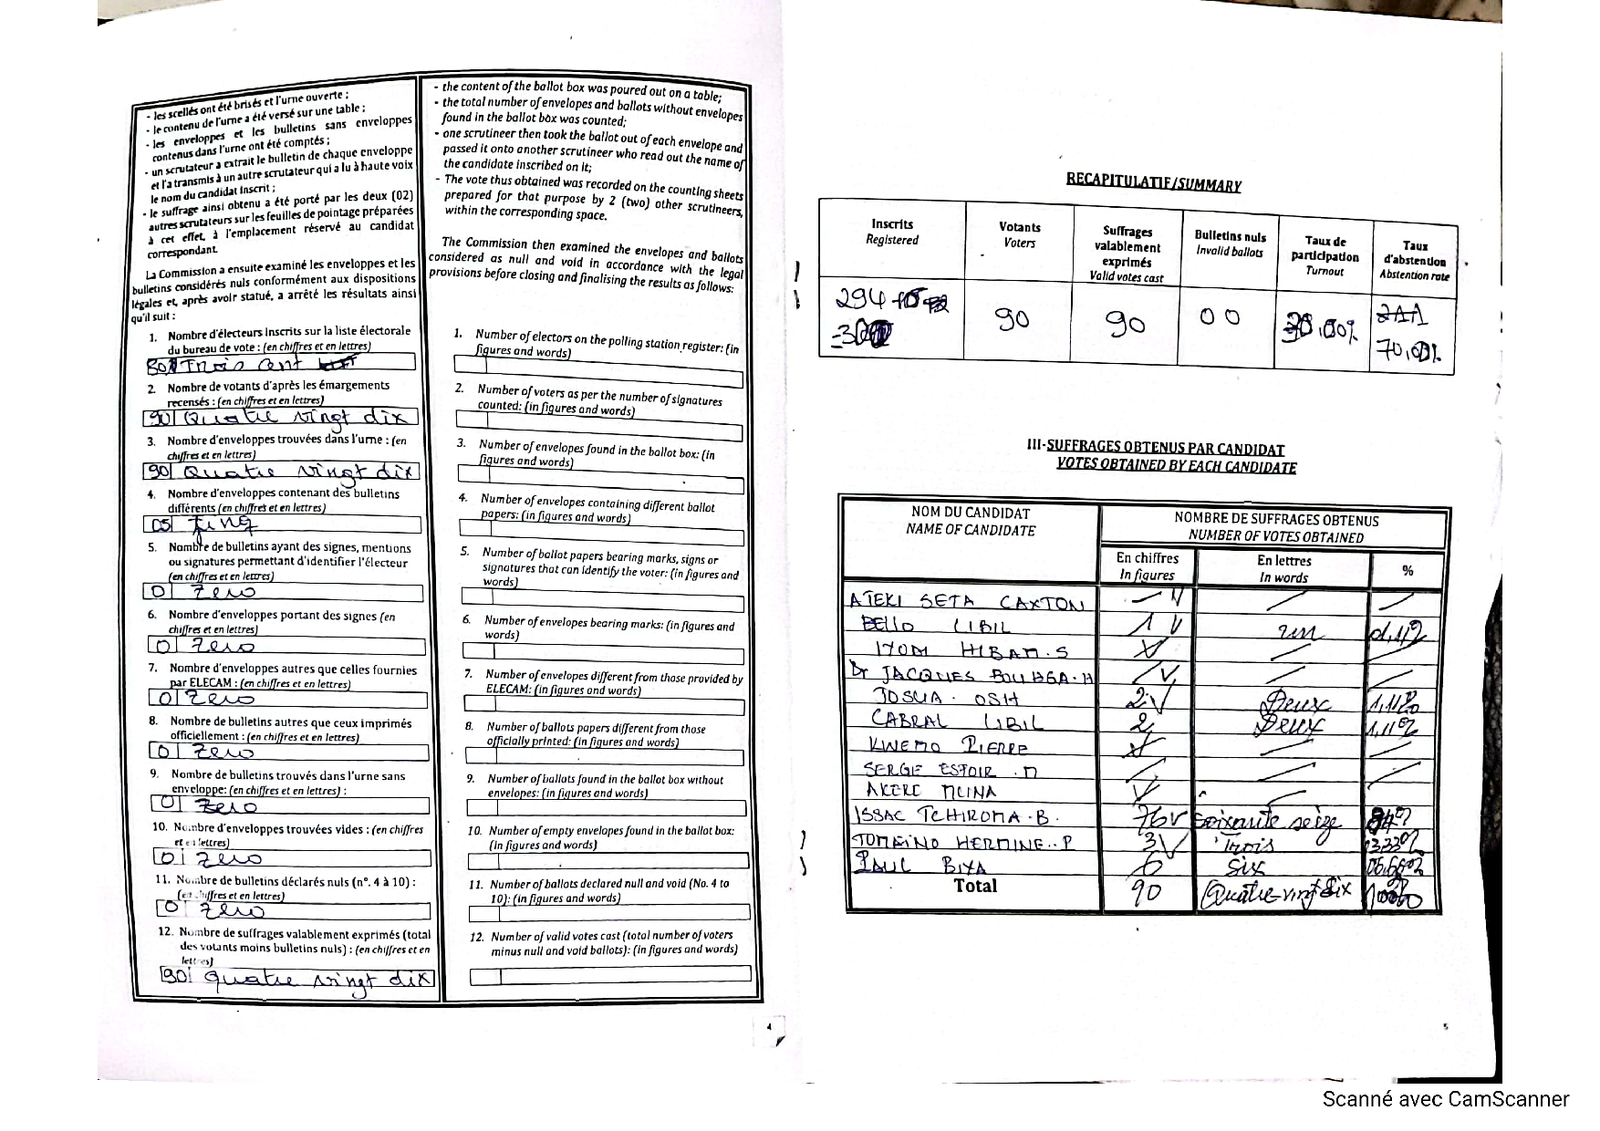 - les scellés ont été brisés et l'urne ouverte ;
- le contenu de l'urne a été versé sur une table ;
- les enveloppes et les bulletins sans enveloppes
contenus dans l'urne ont été comptés ;
- un scrutateur a extrait le bulletin de chaque enveloppe
et l'a transmis à un autre scrutateur qui a lu à haute voix
le nom du candidat inscrit ;
- le suffrage ainsi obtenu a été porté par les deux (02)
autres scrutateurs sur les feuilles de pointage préparées
à cet effet, à l'emplacement réservé au candidat
correspondant.
La Commission a ensuite examiné les enveloppes et les
bulletins considérés nuls conformément aux dispositions
légales et, après avoir statué, a arrêté les résultats ainsi
qu'il suit :
1. Nombre d'électeurs inscrits sur la liste électorale
du bureau de vote : (en chiffres et en lettres)
Trois cent
2. Nombre de votants d'après les émargements
recensés : (en chiffres et en lettres)
90 Quatre vingt dix
3. Nombre d'enveloppes trouvées dans l'urne : (en
chiffres et en lettres)
90 Quatre vingt dix
4. Nombre d'enveloppes contenant des bulletins
différents (en chiffres et en lettres)
05
5. Nombre de bulletins ayant des signes, mentions
ou signatures permettant d'identifier l'électeur
(en chiffres et en lettres)
0 Zero
6. Nombre d'enveloppes portant des signes (en
chiffres et en lettres)
0 Zero
7. Nombre d'enveloppes autres que celles fournies
par ELECAM : (en chiffres et en lettres)
0 Zero
8. Nombre de bulletins autres que ceux imprimés
officiellement : (en chiffres et en lettres)
0 Zero
9. Nombre de bulletins trouvés dans l'urne sans
enveloppe: (en chiffres et en lettres) :
0 Zero
10. Nombre d'enveloppes trouvées vides : (en chiffres
et en lettres)
0 Zero
11. Nombre de bulletins déclarés nuls (n°. 4 à 10) :
(en chiffres et en lettres)
0 Zero
12. Nombre de suffrages valablement exprimés (total
des votants moins bulletins nuls) : (en chiffres et en
lettres)
90 quatre vingt dix
- the content of the ballot box was poured out on a table;
- the total number of envelopes and ballots without envelopes
found in the ballot box was counted;
- one scrutineer then took the ballot out of each envelope and
passed it onto another scrutineer who read out the name of
the candidate inscribed on it;
- The vote thus obtained was recorded on the counting sheets
prepared for that purpose by 2 (two) other scrutineers,
within the corresponding space.
The Commission then examined the envelopes and ballots
considered as null and void in accordance with the legal
provisions before closing and finalising the results as follows:
1. Number of electors on the polling station register: (in
figures and words)
2. Number of voters as per the number of signatures
counted: (in figures and words)
3. Number of envelopes found in the ballot box: (in
figures and words)
4. Number of envelopes containing different ballot
papers: (in figures and words)
5. Number of ballot papers bearing marks, signs or
signatures that can identify the voter: (in figures and
words)
6. Number of envelopes bearing marks: (in figures and
words)
7. Number of envelopes different from those provided by
ELECAM: (in figures and words)
8. Number of ballots papers different from those
officially printed: (in figures and words)
9. Number of ballots found in the ballot box without
envelopes: (in figures and words)
10. Number of empty envelopes found in the ballot box:
(in figures and words)
11. Number of ballots declared null and void (No. 4 to
10): (in figures and words)
12. Number of valid votes cast (total number of voters
minus null and void ballots): (in figures and words)
4
RECAPITULATIF/SUMMARY
Inscrits Registered
Votants Voters
Suffrages valablement exprimés Valid votes cast
Bulletins nuls Invalid ballots
Taux de participation Turnout
Taux d'abstention Abstention rate
294 90 90 00
III-SUFFRAGES OBTENUS PAR CANDIDAT
VOTES OBTAINED BY EACH CANDIDATE
NOM DU CANDIDAT NOMBRE DE SUFFRAGES OBTENUS
NAME OF CANDIDATE NUMBER OF VOTES OBTAINED
En chiffres En lettres %
In figures In words
ATEKI SETA CAXTON
BELLO LIBIL 1 un
HIBAM.S
Dr JACQUES BOUHGA.H
JOSUA. OSH 2 Deux
CABRAL LIBIL 2 Deux
KWEMO PIERRE
SERGE ESPOIR . M
AKERE MUNA
ISSAC TCHIROMA.B. 76 soixante seize
TOMAINO HERMINE..P 3 Trois
PAUL BIYA 6 six
Total 90 Quatre-vingt dix
5
Scanné avec CamScanner